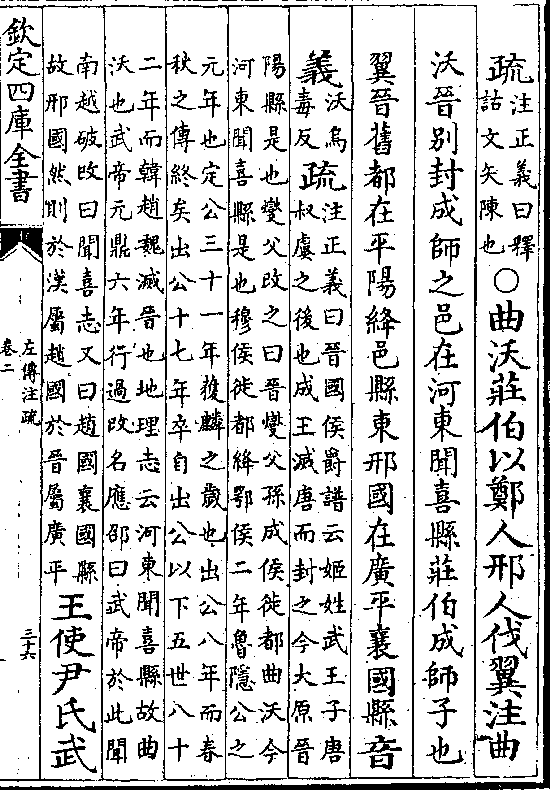 疏注正義曰釋
詁文矢陳也○曲沃莊伯以鄭人邢人伐翼注曲
沃晉別封成師之邑在河東聞喜縣莊伯成師子也
翼晉舊都在平陽絳邑縣東邢國在廣平襄國縣音
義沃烏
毒反疏注正義曰晉國侯爵譜云姬姓武王子唐
叔虞之後也成王滅唐而封之今大原晉
陽縣是也燮父改之曰晉燮父孫成侯徙都曲沃今
河東聞喜縣是也穆侯徙都絳鄂侯二年魯隱公之
元年也定公三十一年獲麟之歲也出公八年而春
秋之傳終矣出公十七年卒自出公以下五世八十
二年而韓趙魏滅晉也地理志云河東聞喜縣故曲
沃也武帝元鼎六年行過改名應邵曰武帝於此聞
南越破改曰聞喜志又曰趙國襄國縣
故邢國然則於漢屬趙國於晉屬廣平王使尹氏武
欽定四庫全書
左傳注疏
卷二
三十六